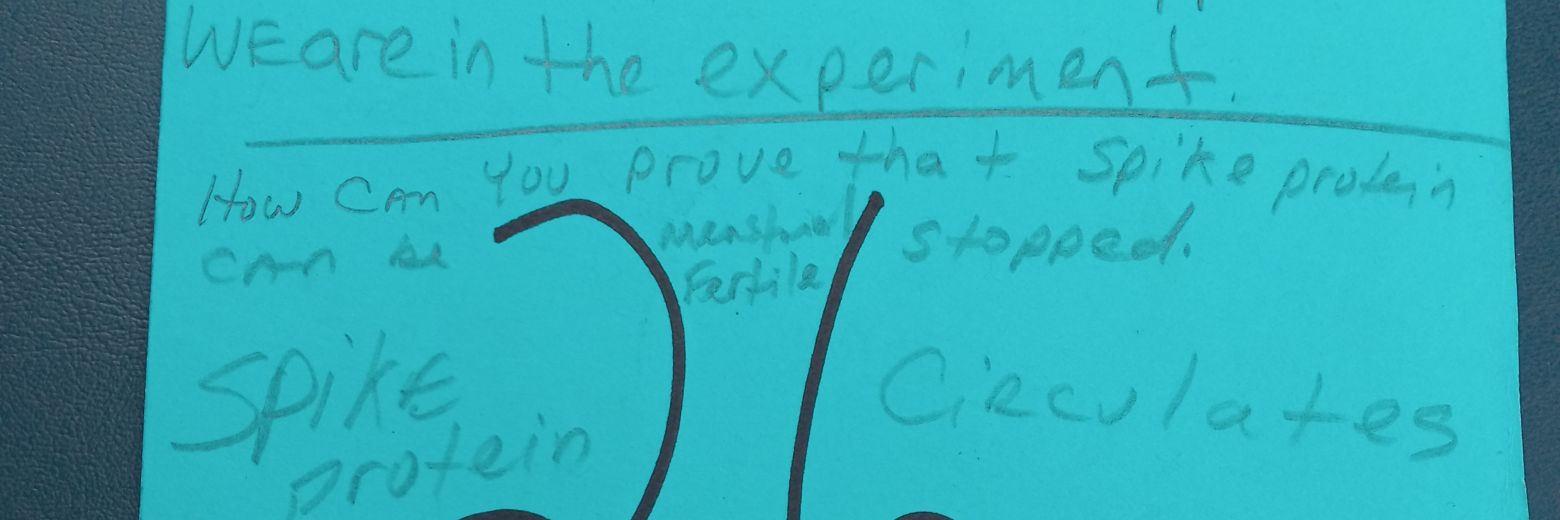 WE are in the experiment.
How CAN you prove that Spike protein
CAn be menstrual stopped.
Fertile
SPiKE Circulates
protein